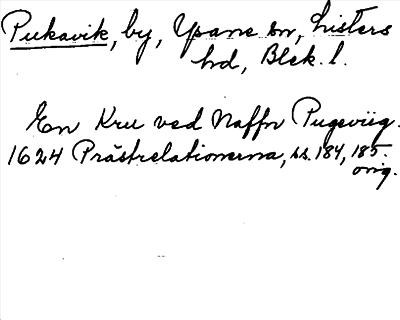 Pukavik, by, Ysane sn, Listers
hd, Blek. l.
En Kru ved Naffn Pugeviig.
1624 Prästrelationerna, ss. 184, 185.
orig.